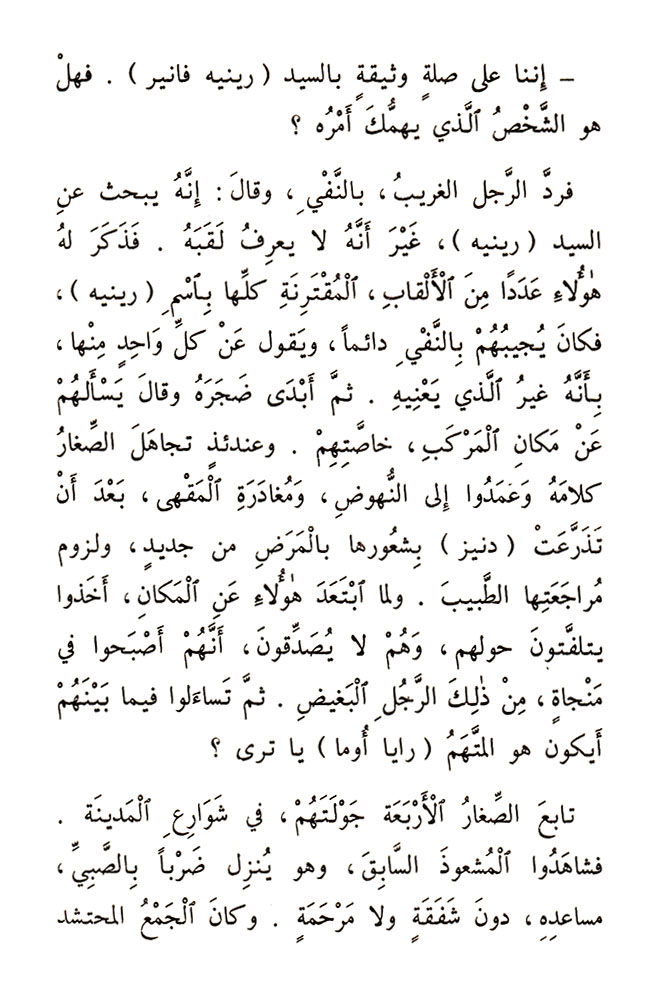 ــ إِننا على صلةٍ وثيقةٍ بالسيد ( رينيه فانير ) . فهلْ
هو الشَّخْصُ ٱلَّذي يهمُّكَ أَمْرُه ؟
فردَّ الرَّجل الغريبُ ، بالنَّفْيِ ، وقالَ : إِنَّهُ يبحث عنِ
السيد ( رينيه ) ، غَيْرَ أَنَّهُ لا يعرِفُ لَقَبَهُ . فَذَكَرَ لهُ
هٰؤُلاءِ عَدَدًا مِنَ ٱلْأَلْقابِ ، ٱلْمُقْتَرِنَةِ كلِّها بِٱسْمِ ( رينيه ) ،
فكانَ يُجيبُهُمْ بِالنَّفْيِ دائماً ، ويَقول عَنْ كلِّ وَاحِدٍ مِنْها ،
بِأَنَّهُ غيرُ ٱلَّذي يَعْنِيهِ . ثمَّ أَبْدَى ضَجَرَهُ وقالَ يَسْأَلهُمْ
عَنْ مَكانِ ٱلْمَرْكَبِ ، خاصَّتِهِمْ . وعندئذٍ تجاهَلَ الصِّغارُ
كلامَهُ وَعَمَدُوا إِلى النُّهوضِ ، وَمُغادَرَةِ ٱلْمَقْهى ، بَعْدَ أَنْ
تَذَرَّعَتْ ( دنيز ) بِشعُورها بالْمَرَضِ من جديدٍ ، ولزوم
مُراجَعَتِها الطَّبيبَ . ولما ٱبْتَعَدَ هٰؤُلاءِ عَنِ ٱلْمَكانِ ، أَخَذوا
يتلفَّتونَ حولهم ، وَهُمْ لا يُصَدِّقونَ ، أَنَّهُمْ أَصْبَحوا في
مَنْجاةٍ ، مِنْ ذٰلِكَ الرَّجُلِ ٱلْبَغيضِ . ثمَّ تَساءَلوا فيما بَيْنَهُمْ
أَيكون هو المتَّهَمُ ( رايا أُوما ) يا ترى ؟
تابعَ الصِّغارُ ٱلْأَرْبَعَة جَوْلَتَهُمْ ، في شَوَارِعِ ٱلْمَدينَة .
فشاهَدُوا ٱلْمُشعوذَ السَّابِقَ ، وهو يُنزِل ضَرْباً بِالصَّبِيِّ ،
مساعدِهِ ، دونَ شَفَقَةٍ ولا مَرْحَمَةٍ . وكانَ ٱلْجَمْعُ المحتشد